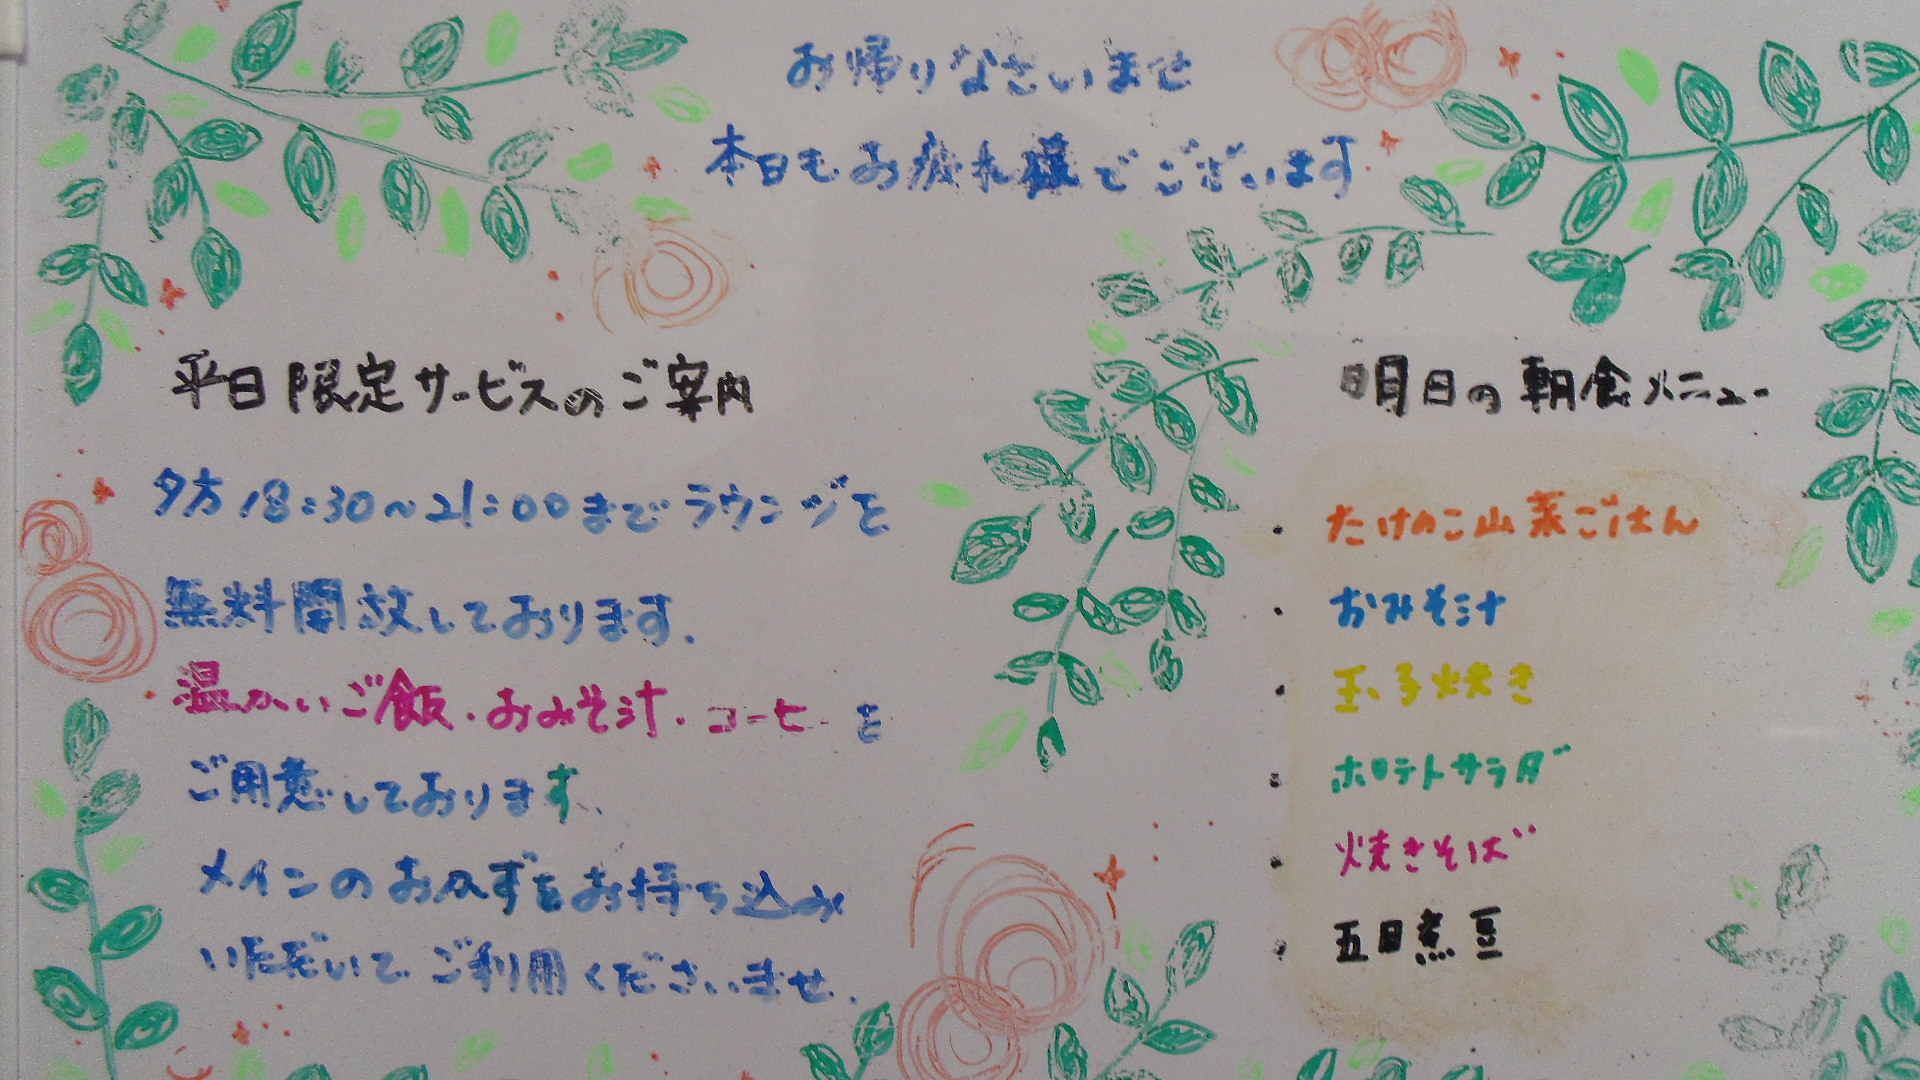 お帰りなさいませ
本日もお疲れ様でございます
平日限定サービスのご案内
夕方18:30～21:00までラウンジを
無料開放しております。
温かいご飯・おみそ汁・コーヒーを
ご用意しております。
メインのおかずをお持ち込み
いただいてご利用くださいませ。
明日の朝食メニュー
・たけのこ山菜ごはん
・おみそ汁
・玉子焼き
・ポテトサラダ
・焼きそば
・五目煮豆